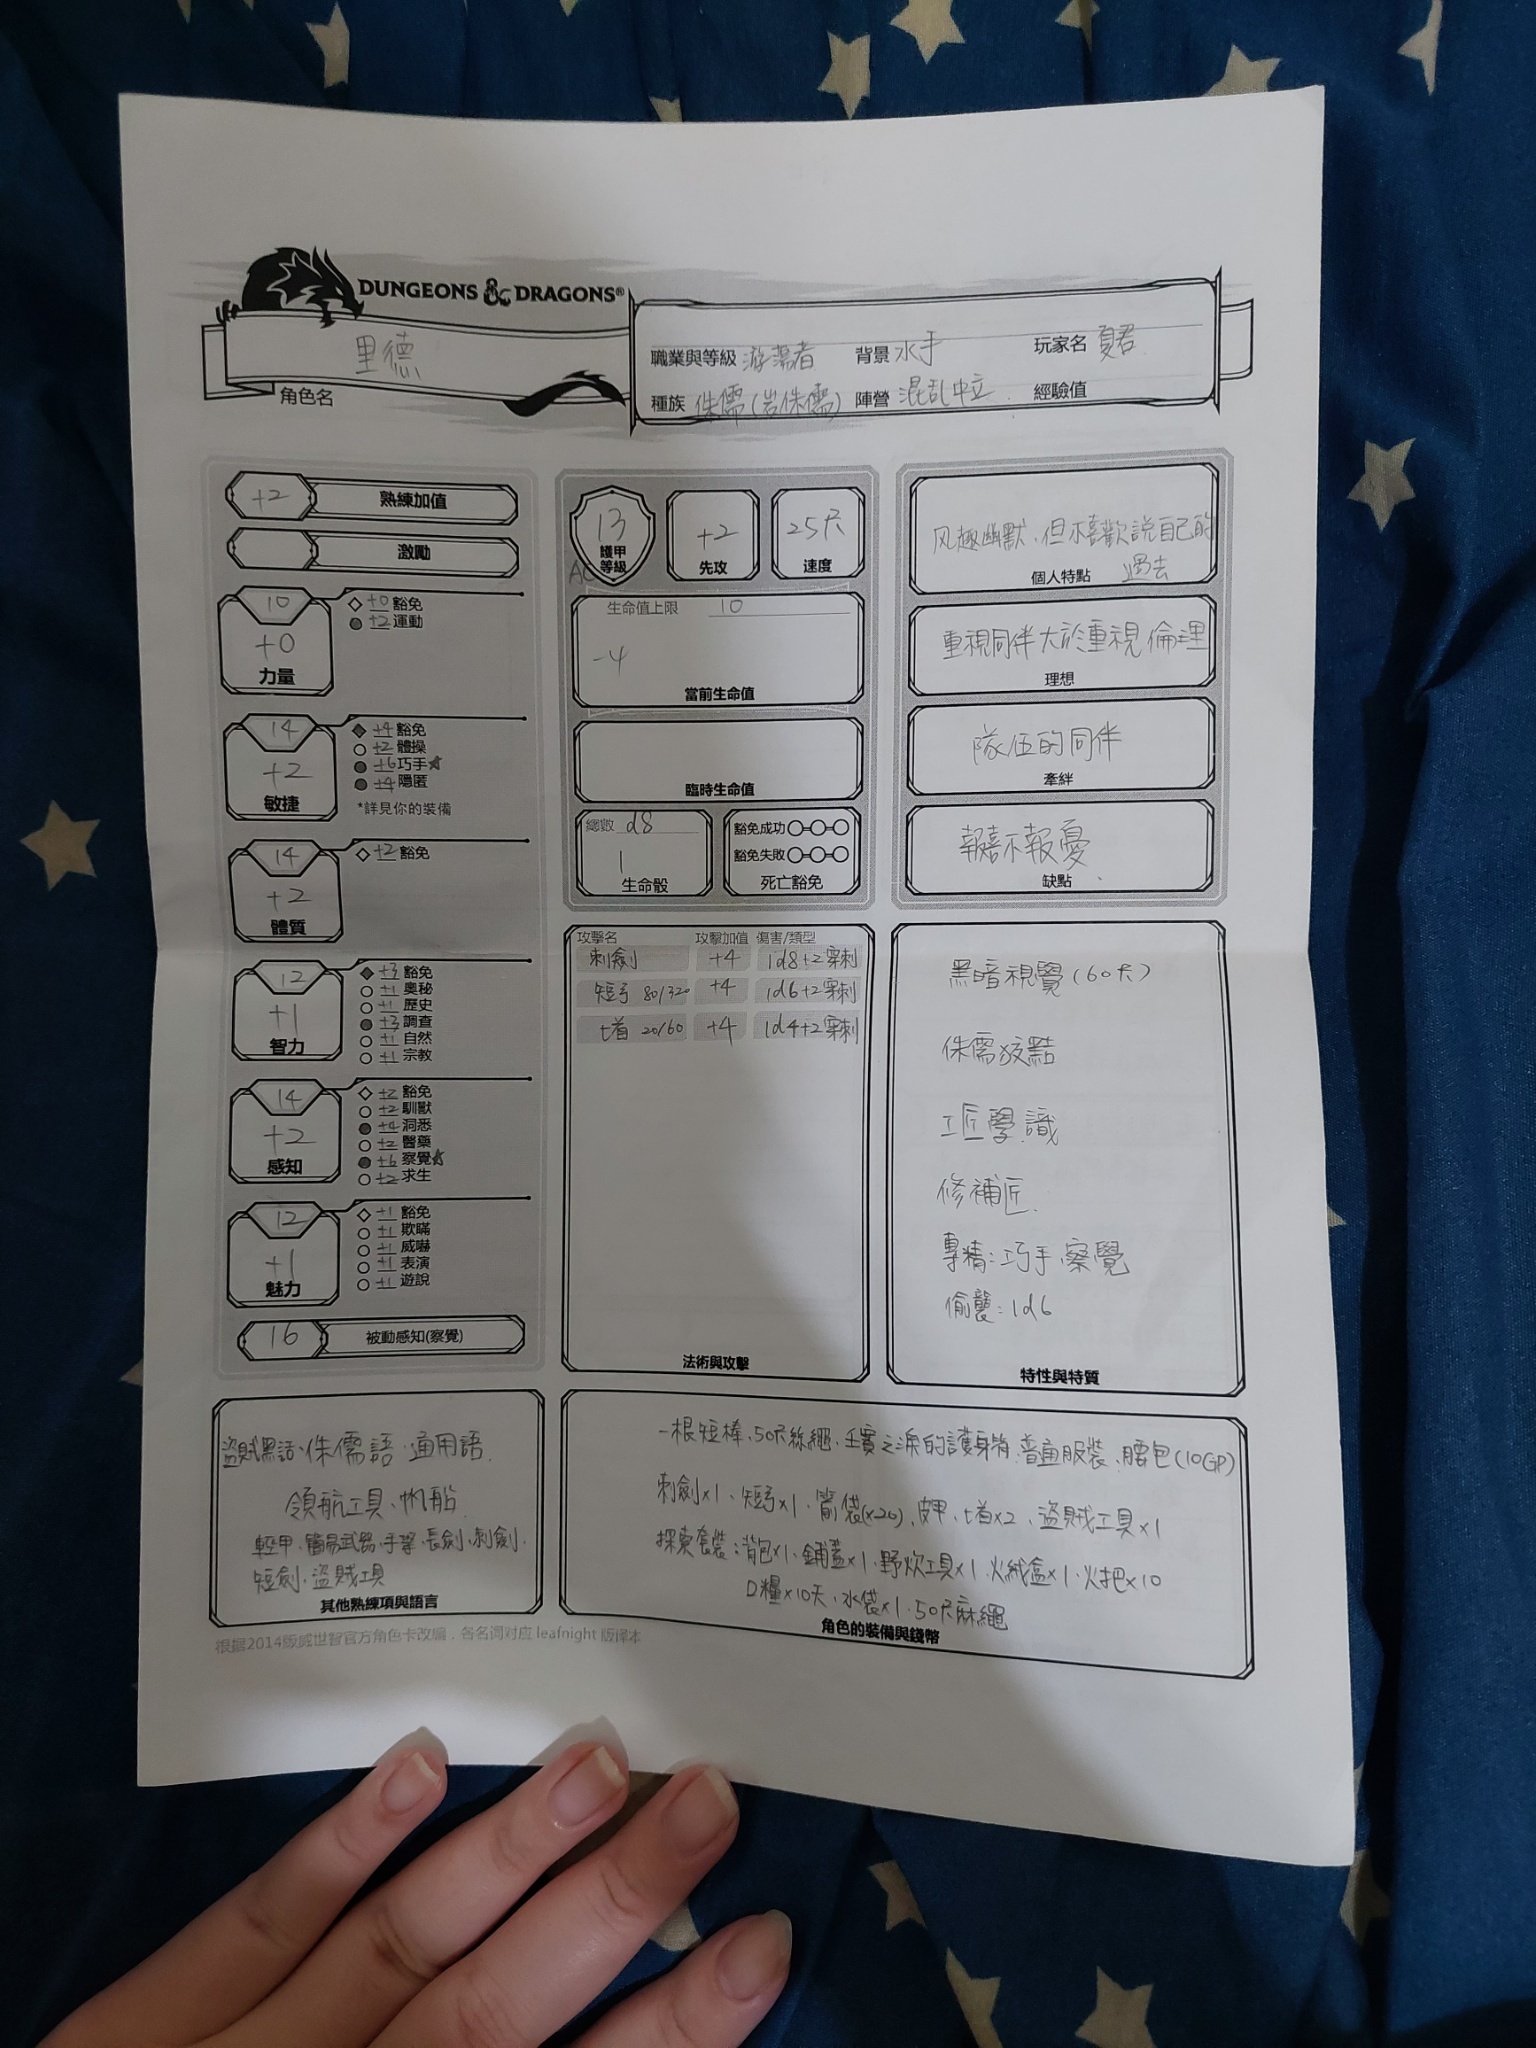 DUNGEONS & DRAGONS®
里德
角色名
職業與等級 游蕩者 背景 水手 玩家名 夏君
種族 侏儒(岩侏儒) 陣營 混乱中立 經驗值
+2 熟練加值
激勵
10
+0
力量
+0 豁免
+2 運動
14
+2
敏捷
+4 豁免
+2 體操
+6 巧手
+4 隱匿
*詳見你的裝備
14
+2
體質
+2 豁免
12
+1
智力
+3 豁免
+1 奧秘
+1 歷史
+3 調查
+1 自然
+1 宗教
14
+2
感知
+2 豁免
+2 馴獸
+4 洞悉
+2 醫藥
+6 察覺
+2 求生
12
+1
魅力
+1 豁免
+1 欺瞞
+1 威嚇
+1 表演
+1 遊說
16 被動感知(察覺)
13
護甲
等級
AC
+2
先攻
25尺
速度
生命值上限 10
-4
當前生命值
臨時生命值
總數 d8
1
生命骰
豁免成功
豁免失敗
死亡豁免
攻擊名 攻擊加值 傷害/類型
刺劍 +4 1d8+2穿刺
短弓 80/320 +4 1d6+2穿刺
匕首 20/60 +4 1d4+2穿刺
法術與攻擊
风趣幽默、但不喜歡說自己的
過去
個人特點
重視同伴大於重視倫理
理想
隊伍的同伴
牽絆
報喜不報憂
缺點
黑暗視覺(60尺)
侏儒狡黠
工匠學識
修補匠
專精:巧手、察覺
偷襲:1d6
特性與特質
盜賊黑話、侏儒語、通用語
領航工具、帆船
輕甲、簡易武器、手弩、長劍、刺劍、
短劍、盜賊工具
其他熟練項與語言
一根短棒、50尺絲繩、護身符、普通服裝、腰包(10GP)
刺劍x1、短弓x1、箭袋(x20)、皮甲、匕首x2、盜賊工具x1
探索套裝:背包x1、鋪蓋x1、野炊工具x1、火絨盒x1、火把x10
口糧x10天、水袋x1、50尺麻繩
角色的裝備與錢幣
根据2014版威世智官方角色卡改編，各名词对应 leafnight 版译本